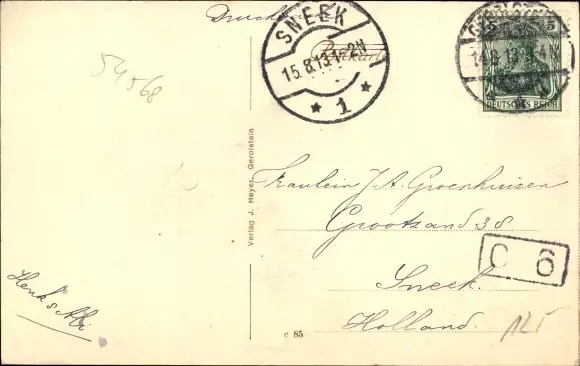 Drucksache
Postkarte
SNEEK
15.8.13 1-2N
* 1 *
14.8.13
5 5
DEUTSCHES REICH
54568
Verlag J. Heyer, Gerolstein
Fraulein J.A. Groenhuizen
Grootzand 38
C 6
Sneek.
Holland.
Henk & Ali
c 85